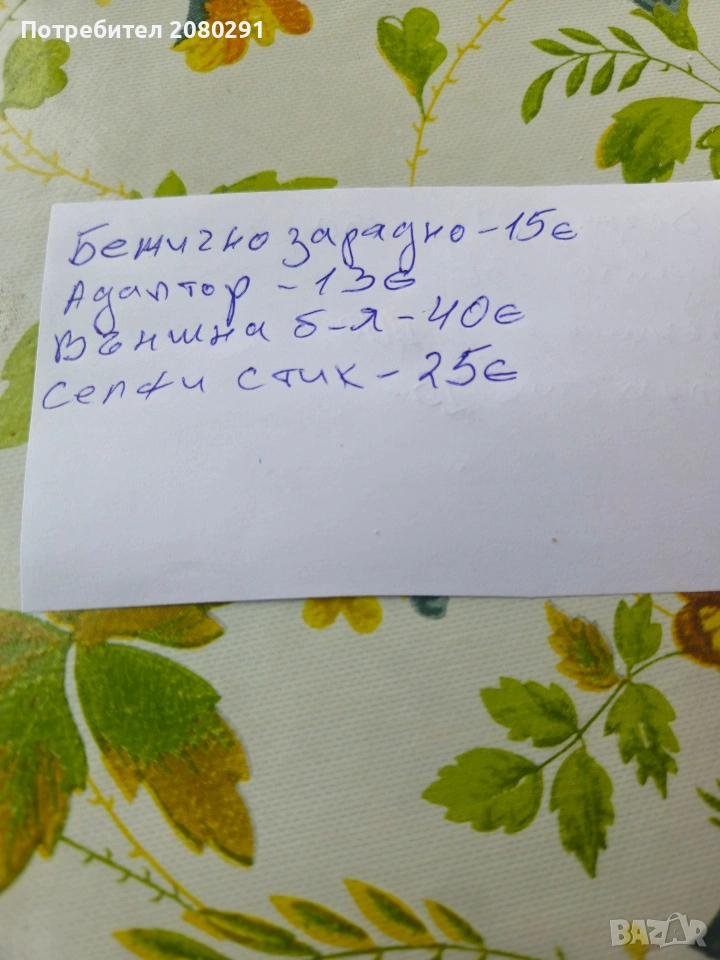 Потребител 2080291
Безжично зарядно - 15€
Адаптор - 13€
Външна б-я - 40€
Селфи стик - 25€
BAZAR